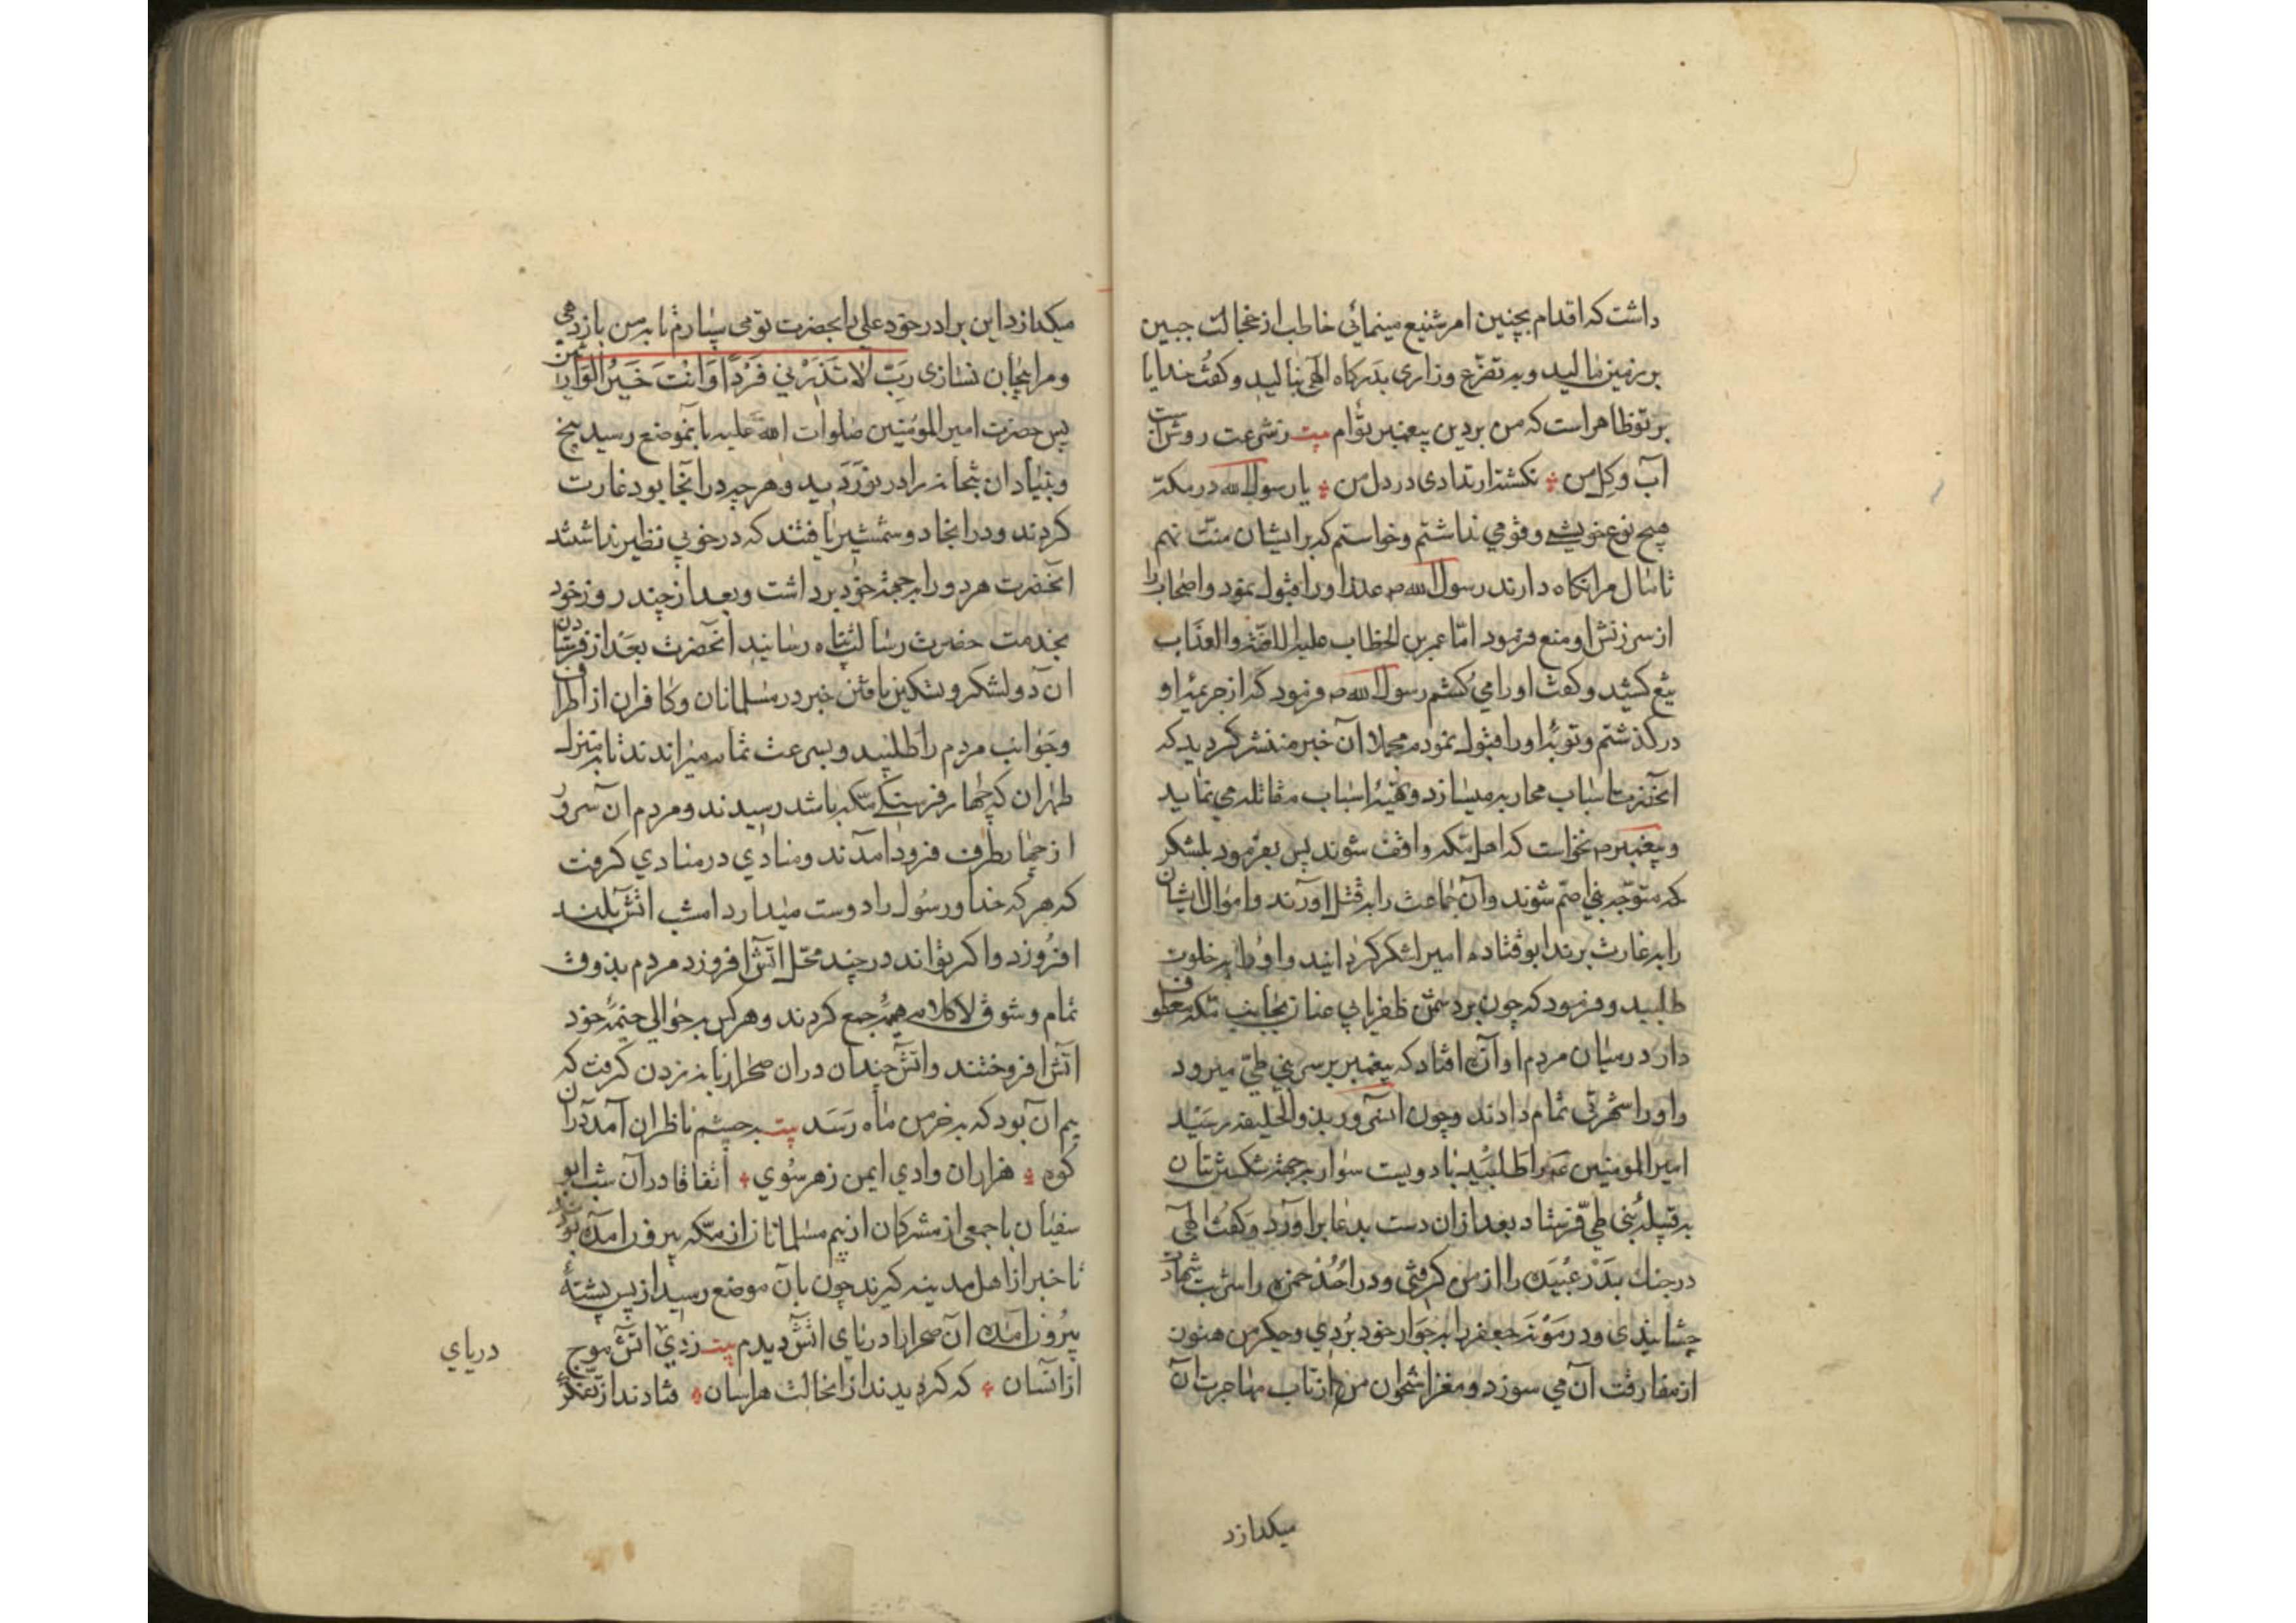 داشت که اقدام بچنین امر شنیع مینمائی خاطب از خجالت جبین
بر زمین مالید و به تضرّع و زاری بدرکاه الهی بنالید و کفت خدایا
بر تو ظاهر است که من بر دین پیغمبر توأم بیت ز شرعت روشن است
آب و کل من نکشته ارتدادی در دل من یا رسول الله در مکّه
هیچ نوع خویشی و قومی نداشتم و خواستم که بر ایشان منّت نهم
تا مال مرا نکاه دارند رسول الله ص عذر او را قبول نمود و اصحاب را
از سرزنش او منع فرمود امّا عمر بن الخطاب علیه اللعنة والعذاب
تیغ کشید و کفت او را می کشم رسول الله ص فرمود که از جریمهٔ او
در کذشتم و توبهٔ او را قبول نمودم مجملا آن خبر منتشر کردید که
انحضرت اسباب محاربه میسازد و تهیّهٔ اسباب مقاتله می نماید
و پیغمبر ص نخواست که اهل مکّه واقف شوند پس بفرمود بلشکر
که متوجّه بنی اصم شوند وآن جماعت را به قتل اورند و اموال ایشان
را به غارت برند ابو قتاده امیر لشکر کردانید و او را به خلوت
طلبید و فرمود که چون بر دشمن ظفر یابی عنان بجانب مکّه معطوف
دار در میان مردم آوازه افتاد که پیغمبر بر سر بنی طیّ میرود
و او را شهرتی تمام دادند و چون انسرور بذوالحلیفه رسید
امیر المومنین ع را طلبید با دویست سوار به جهة شکستن بتان
به قبیلهٔ بنی طیّ فرستاد بعد ازان دست بدعا براورد و کفت الهی
در جنك بدر عبیده را از من کرفتی و در احد حمزه را شربت شهادت
چشانیدی و در موته جعفر را به جوار خود بردی و جکر من هنوز
از مفارقت آن می سوزد و مغز استخوان من از تاب مهاجرت آن
میکدازد
میکدازد این برادر خود علی را بحضرت تو می سپارم تا به من باز دهی
و مرا بیجان نسازی رَبِّ لا تَذَرْنی فَرْدًا وَانْتَ خَیْرُ الْوارِثین
پس حضرت امیر المومنین صلوات الله علیه با نموضع رسید بیخ
و بنیاد ان بتخانه را در نوردید و هر چه در انجا بود غارت
کردند و در انجا دو شمشیر یافتند که در خوبی نظیر نداشتند
انحضرت هر دو را به جهة خود برداشت و بعد از چند روز خود
بخدمت حضرت رسالت پناه رسانید انحضرت بعد از فرستادن
ان دو لشکر و تسکین یافتن خبر در مسلمانان و کافران از اطراف
و جوانب مردم را طلبید و بسرعت تمام میراندند تا به منزل
طهران که چهار فرسنکی مکّه باشد رسیدند و مردم ان سرور
از چهار طرف فرود امدند و منادی در منادی کرفت
که هر که خدا و رسول را دوست میدارد امشب اتش بلند
افروزد و اکر تواند در چند محّل اتش افروزد مردم بذوق
تمام و شوق لا کلام هیمه جمع کردند و هر کس به حوالی خیمهٔ خود
اتش افروختند و اتش چندان دران صحرا زبانه زدن کرفت که
بیم ان بود که به خرمن ماه رسد بیت به چشم ناظران آمد دران
کوه هزاران وادی ایمن ز هر سوی اتفاقا در آن شب ابو
سفیان با جمعی از مشرکان از بیم مسلمانان از مکّه بیرون امده بودند
تا خبر از اهل مدینه کیرند چون بان موضع رسید از پس پشتهٔ
بیرون امده ان صحرا را دریای اتش دیدم بیت زدی اتش موج
از انسان که کردیدند ازانحالت هراسان فتادند از تفکر
دریای